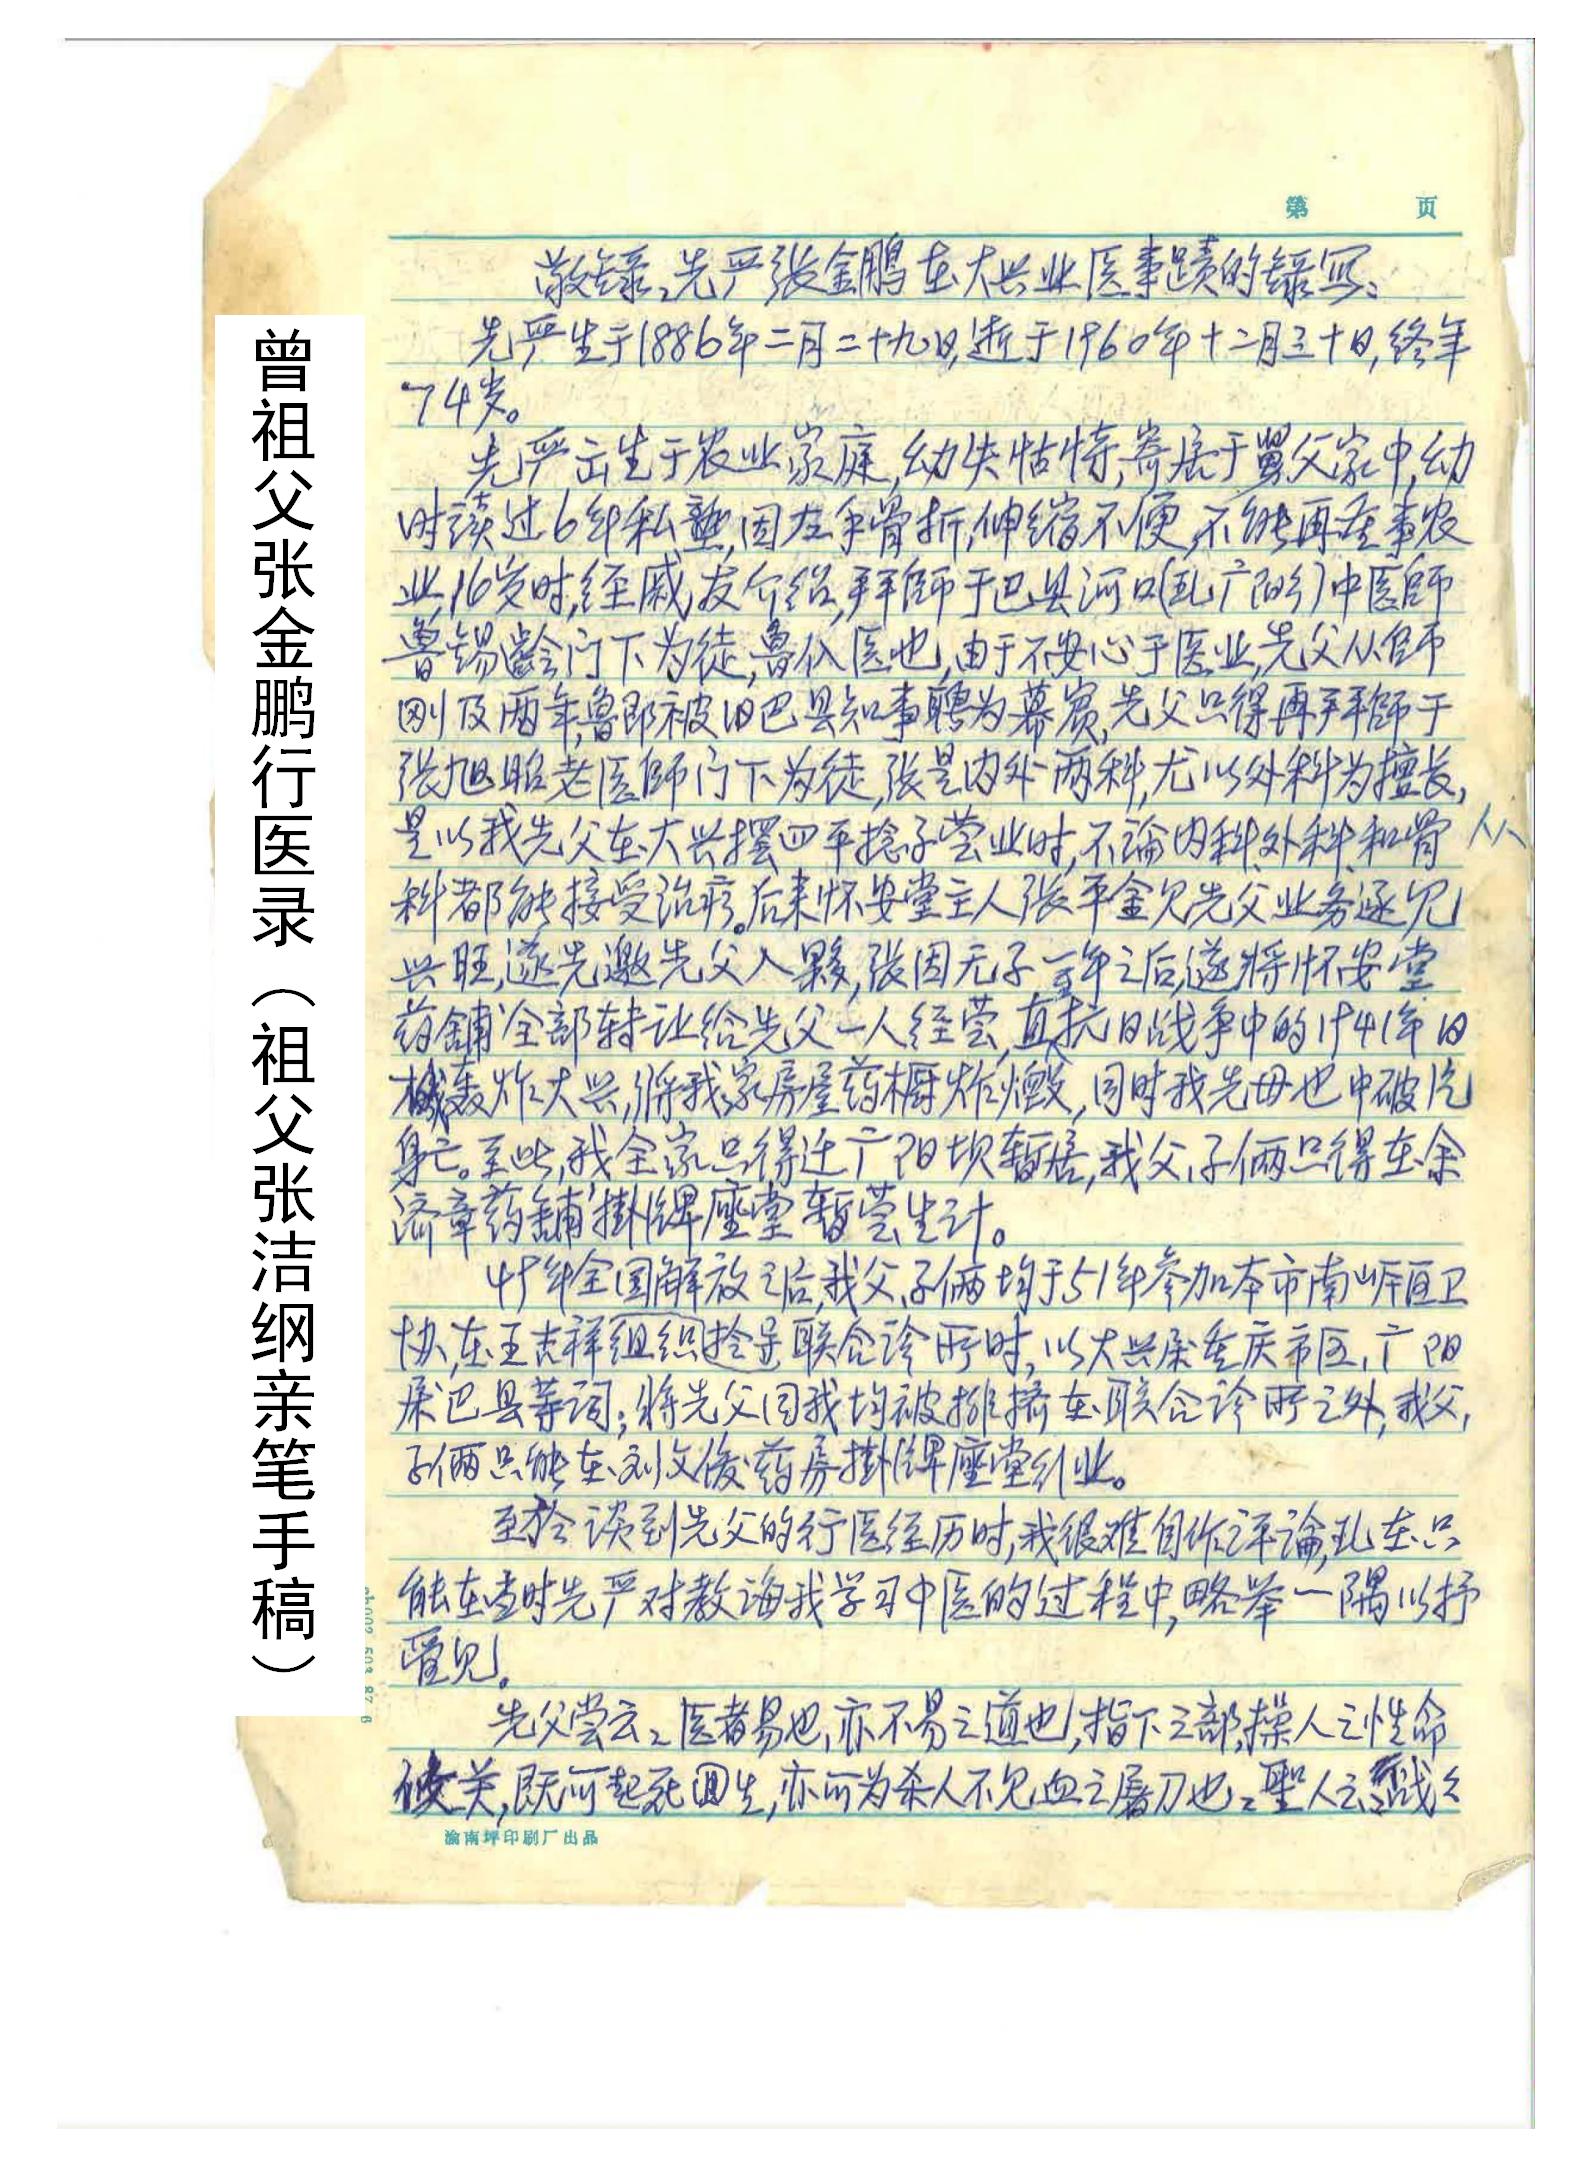 第 页
敬录:先严张金鹏在大兴业医事蹟的録写:
先严生于1886年二月二十九日,逝于1960年十二月三十日,终年
74岁。
先严出生于农业家庭,幼失怙恃,寄居于舅父家中,幼
时读过6年私塾,因左手骨折,伸缩不便,不能再在事农
业,16岁时,经戚友介绍,拜师于巴县河口(现广阳乡)中医师
鲁锡龄门下为徒,鲁 医也,由于不安心于医业,先父从师
刚及两年,鲁即被旧巴县知事聘为幕宾,先父只得再拜师于
张旭昭老医师门下为徒,张是内外两科,尤以外科为擅长,
是以我先父在大兴摆四平捻子营业时,不论内科、外科、和骨
科都能接受治疗。后来怀安堂主人张平金见先父业务逐见
兴旺,遂先邀先父入夥,张因无子,一年之后,遂将怀安堂
药鋪全部转让给先父一人经营,直抗日战争中的1941年日
机轰炸大兴,将我家房屋药橱炸燬,同时我先母也中破片
身亡。至此,我全家只得迁广阳坝暂居,我父子俩只得在余
济章药鋪掛牌座堂暂营生计。
49年全国解放之后,我父子俩均于51年参加本市南岸区卫
协,在王吉祥组织 联合诊所时,以大兴属重庆市区,广阳
属巴县等词;将先父同我均被排挤在联合诊所之外,我父
子俩只能在刘文俊药房掛牌座堂行业。
至於谈到先父的行医经历时,我很难自作评论,现在只
能在当时先严对教诲我学习中医的过程中,略举一隅以抒
管见。
先父尝云:医者易也,亦不易之道也,指下之部,操人之性命
攸关,既可起死回生,亦可为杀人不见血之屠刀也:聖人云:戒之
渝南坪印刷厂出品
曾祖父张金鹏行医录(祖父张洁纲亲笔手稿)